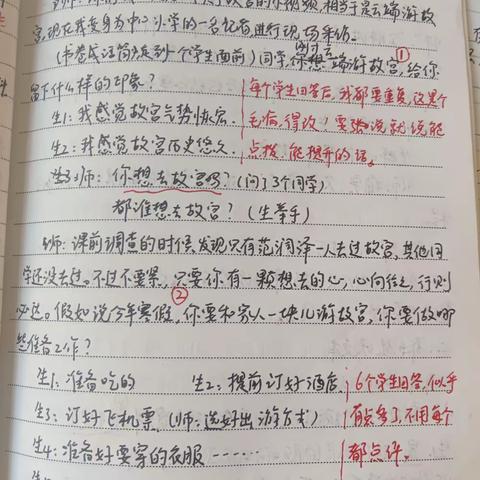 宫,现在我变身为中心小学的一名记者进行现场采访。
同学,你刚才云端游故宫,给你①
留下什么样的印象?
每个学生回答后,我都要重复,这是个
生1:我感觉故宫气势恢宏.
毛病,得改!要说就说能
生2:我感觉故宫历史悠久.
点拨、能提升的话。
师:你想去故宫吗?(问了3个同学)
都谁想去故宫?(生举手)
师:课前调查的时候,发现只有范润泽一人去过故宫,其他同
学还没去过。不过不要紧,只要你有一颗想去的心,心向往之,行则
②
必达。假如说今年寒假,你要和家人一块儿游故宫,你要做哪
些准备工作?
生1:准备吃的 生2:提前订好酒店
6个学生回答,似乎
生3:订好飞机票(师:选好出游方式)
有点多了,不用每个
生4:准备好要穿的衣服……
都点评。